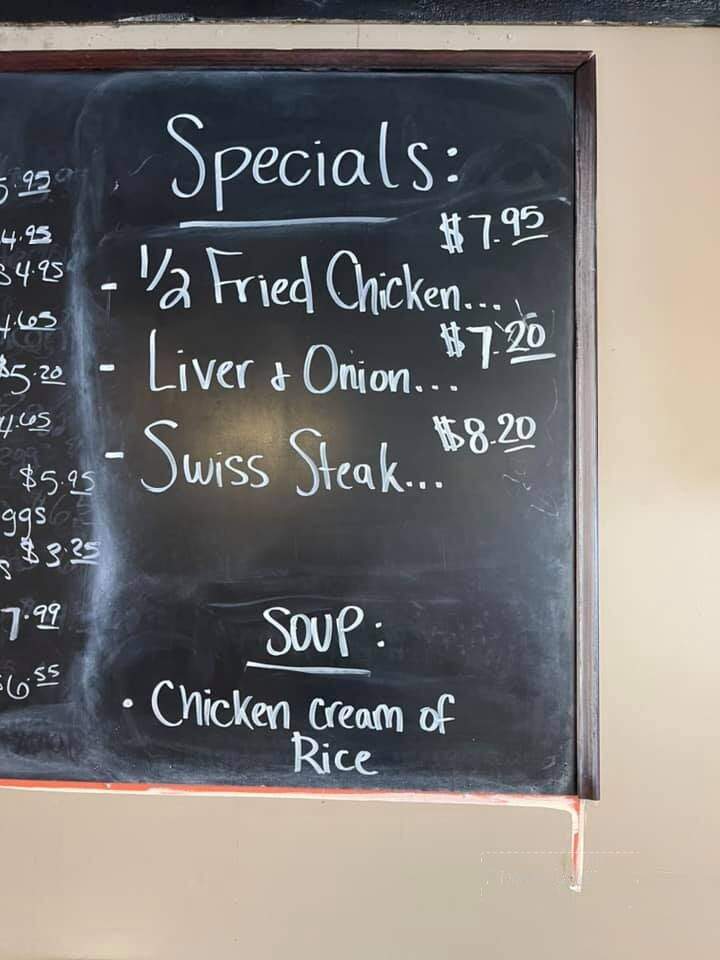 Specials:
$7.95
- 1/2 Fried Chicken...
$7.20
- Liver & Onion...
$8.20
- Swiss Steak...
SOUP:
• Chicken cream of
Rice
5.95
4.95
$4.95
4.65
$5.20
4.65
$5.95
ggs
s $3.25
7.99
$6.55